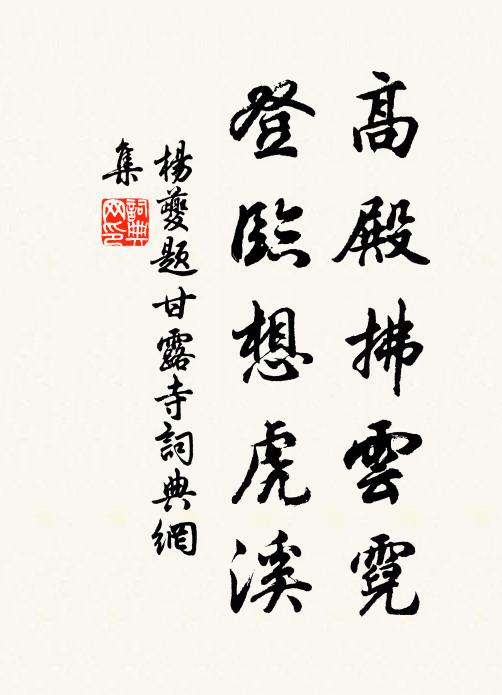 高殿拂雲霓
登臨想虎溪
楊夔題甘露寺詞典網
集
詞典網印